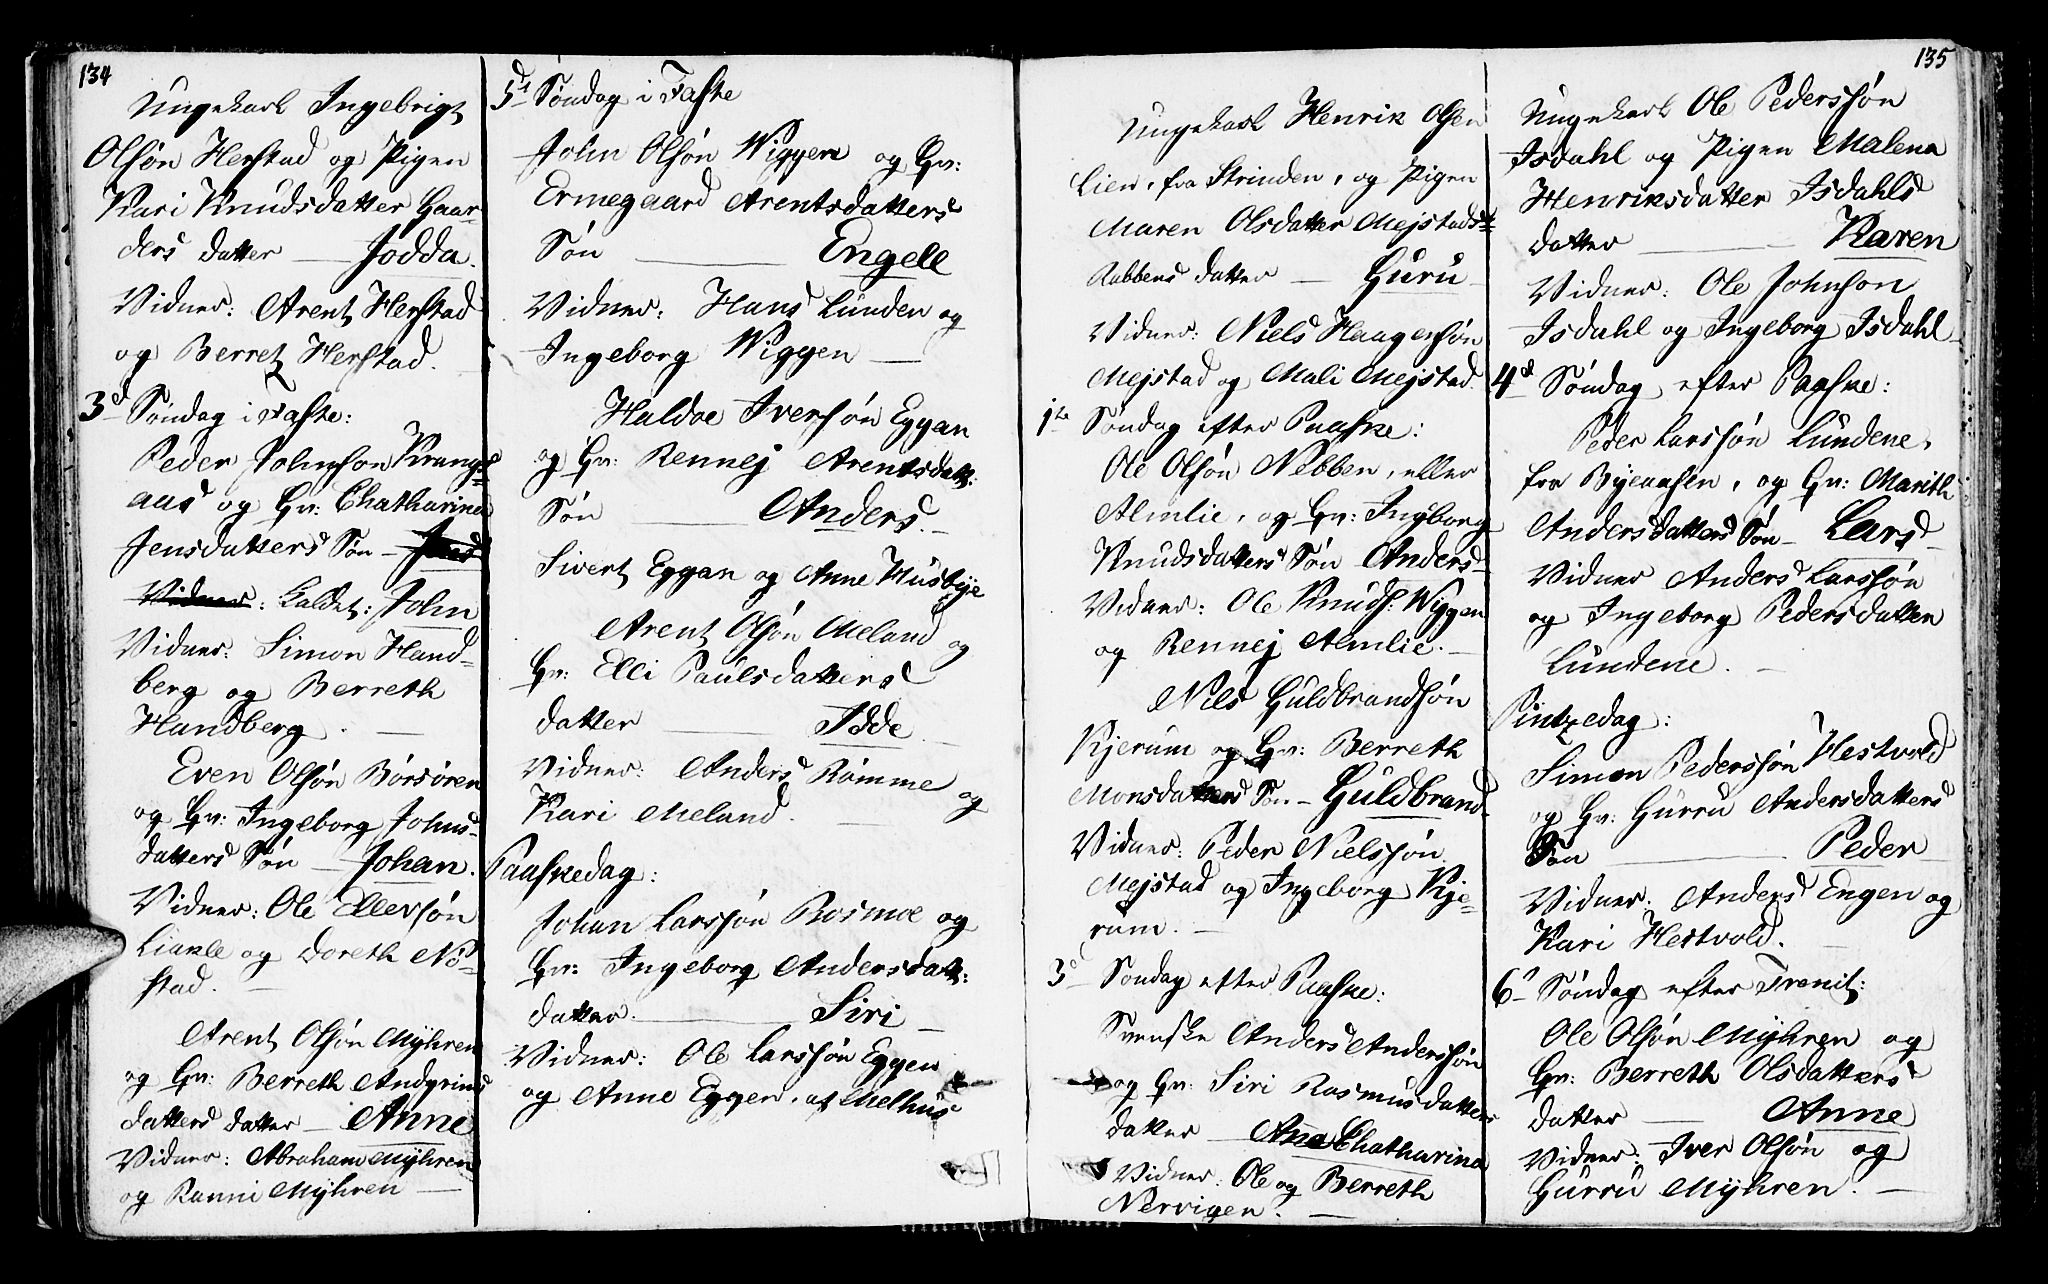 134
Ungekarl Ingebrigt
Olsøn Herstad og Pigen
Kari Knudsdatter Gaar-
ders datter — Jodda.
Vidner: Arent Herstad
og Berret Herstad.
3d Søndag i Faste:
Peder Johnson Krangs-
aas og Hu: Chatharina
Jensdatters Søn —
Vidner: kaldet: John
Vidner: Simon Hand-
berg og Berreth
Handberg. —
Even Olsøn Børsøren
og Hu: Ingeborg Johns-
datters Søn — Johan.
Vidner: Ole Ellevsøn
Liakle og Doreth No-
stad. —
Arent Olsøn Mÿhren
og Hu: Berreth Andgrims
datters datter — Anne
Vidner: Abraham Mÿhren
og Ranni Mÿhren —
5t Søndag i Faste
John Olsøn Wiggen og Hu:
Ermegaard Arentsdatters
Søn — Engell
Vidner: Hans Lunden og
Ingeborg Wiggen —
Haldoe Iversøn Eggan
og Hu: Rennej Arentsdatt:
Søn — Anders. —
Sivert Eggan og Anne Husbÿe
Arent Olsøn Meland og
Hu: Elli Paulsdatters
datter — Idde —
Vidner: Anders Rømme og
Kari Meland. —
Paaskedag:
Johan Larssøn Rosmoe og
Hu: Ingeborg Andersdatt:
datter. — Siri —
Vidner: Ole Larssøn Eggen
og Anne Eggen, af Melhus
135
Ungekarl Henrik Olsen
Lien, fra Strinden, og Pigen
Maren Olsdatter Mejstads-
Rabbens datter — Guru —
Vidner: Niels Haagensøn
Mejstad og Mali Mejstad.
1te Søndag efter Paaske:
Ole Olsøn Nebben, eller
Almlie, og Hu: Ingborg
Knudsdatters Søn Anders —
Vidner: Ole Knuds: Wiggen
og Rennej Almlie. —
Niels Guldbrandsøn
Kjerum og Hu: Berreth
Monsdatters Søn — Guldbrand.
Vidner: Peder Nielssøn
Mejstad og Ingeborg Kje-
rum. —
3d Søndag efter Paaske:
Svenske Anders Anderssøn
og Hu: Siri Rasmusdatters
datter — Ana Chatharina
Vidner: Ole og Berreth
Nervigen. —
Ungekarl Ole Pederssøn
Isdahl og Pigen Malena
Henriksdatter Isdahls
datter — Karen
Vidner: Ole Johnson
Isdahl og Ingeborg Isdahl —
4d Søndag efter Paaske:
Peder Larssøn Lundene,
fra Byeaasen, og Hu: Marith
Andersdatters Søn — Lars —
Vidner Anders Larssøn
og Ingeborg Pedersdatter
Lundene. —
Pintzedag:
Simon Pederssøn Hestvold
og Hu: Gurru Andersdatters
Søn — Peder
Vidner: Anders Engen og
Kari Hestvold. —
6t Søndag efter Trenit:
Ole Olsøn Mÿhren og
Hu: Berreth Olsdatters
datter — Anne
Vidner: Iver Olsøn og
Gurru Mÿhren. —